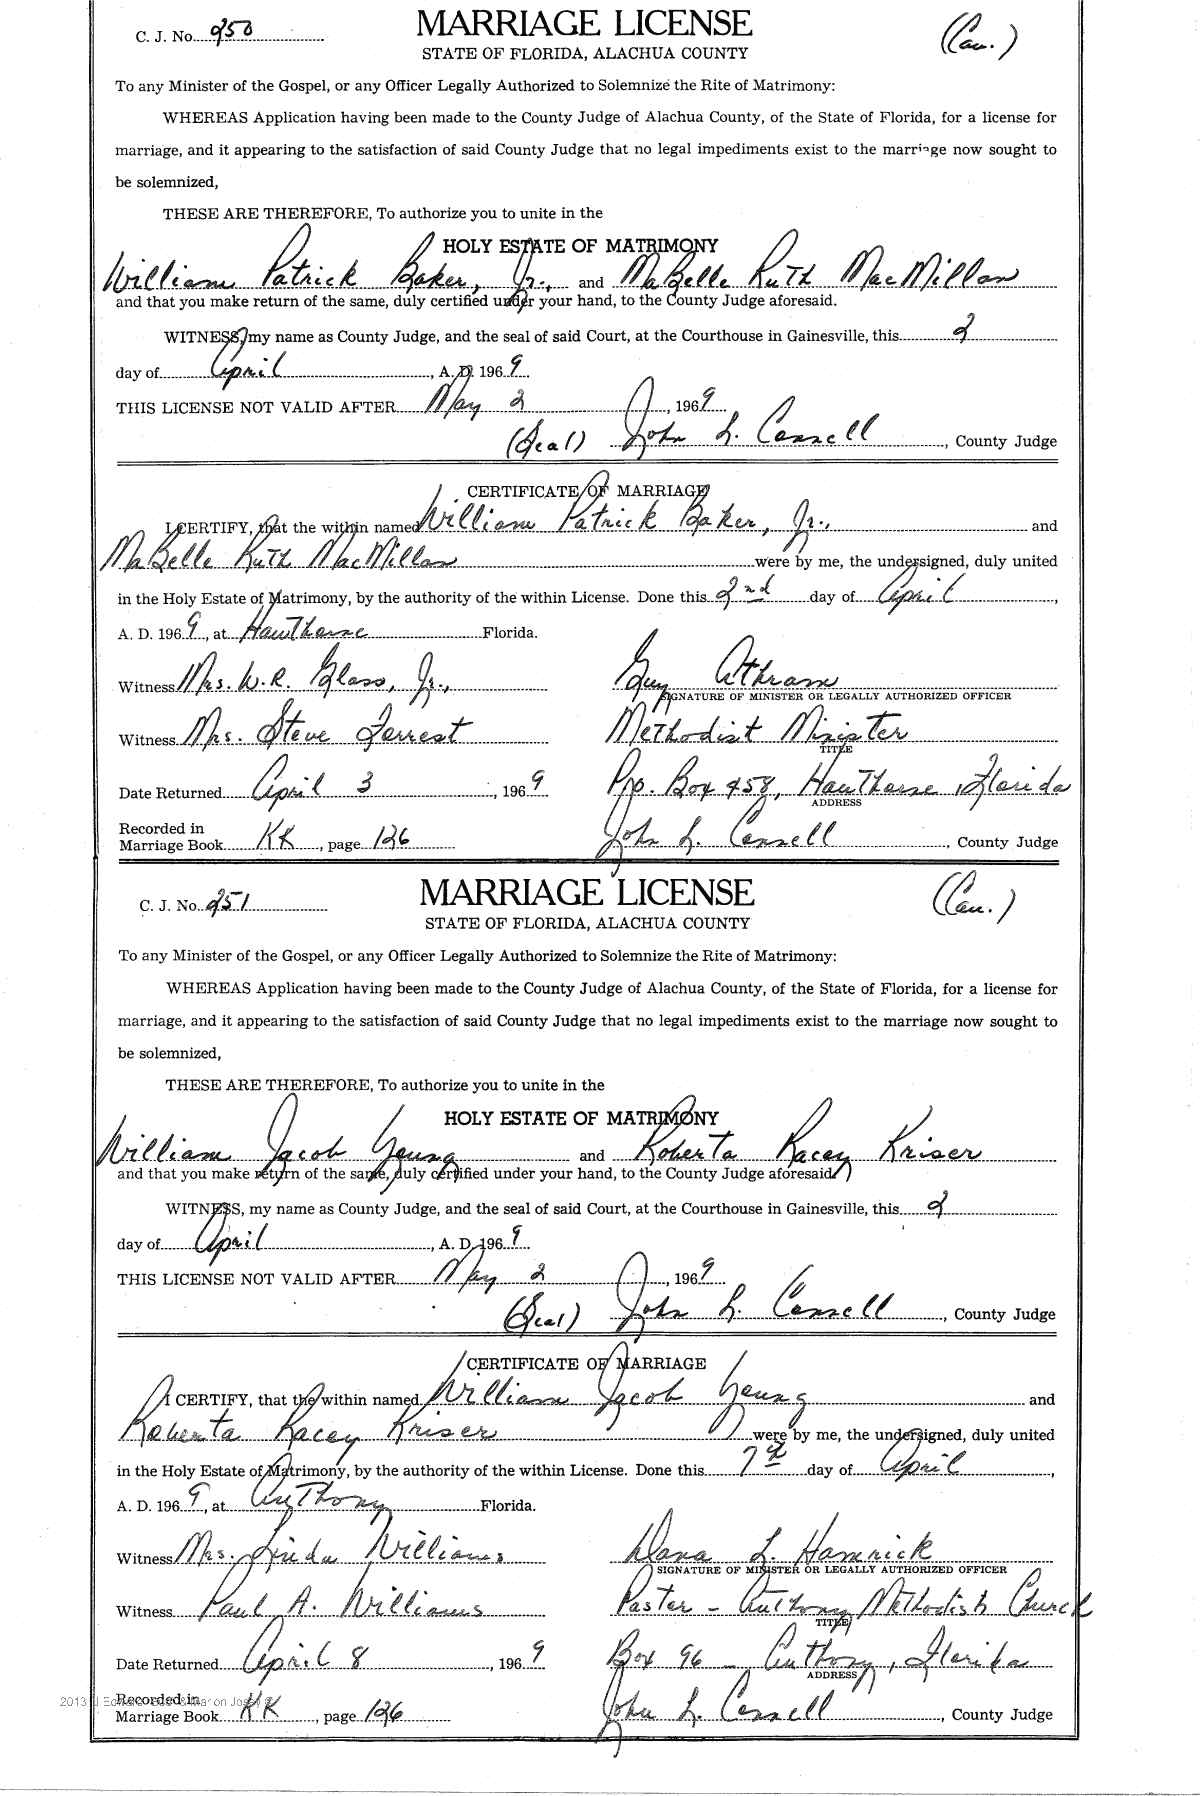 C. J. No. 250
MARRIAGE LICENSE
(Cau.)
STATE OF FLORIDA, ALACHUA COUNTY
To any Minister of the Gospel, or any Officer Legally Authorized to Solemnize the Rite of Matrimony:
WHEREAS Application having been made to the County Judge of Alachua County, of the State of Florida, for a license for
marriage, and it appearing to the satisfaction of said County Judge that no legal impediments exist to the marriage now sought to
be solemnized,
THESE ARE THEREFORE, To authorize you to unite in the
HOLY ESTATE OF MATRIMONY
William Patrick Baker, Jr., and MaBelle Ruth MacMillan
and that you make return of the same, duly certified under your hand, to the County Judge aforesaid.
WITNESS, my name as County Judge, and the seal of said Court, at the Courthouse in Gainesville, this 2
day of April, A. D. 1969
THIS LICENSE NOT VALID AFTER May 2, 1969
(Seal) John L. Connell, County Judge
CERTIFICATE OF MARRIAGE
I CERTIFY, that the within named William Patrick Baker, Jr., and
MaBelle Ruth MacMillan were by me, the undersigned, duly united
in the Holy Estate of Matrimony, by the authority of the within License. Done this 2nd day of April,
A. D. 1969, at Hawthorne Florida.
Witness Mrs. W. R. Glass, Jr., Guy Athram
SIGNATURE OF MINISTER OR LEGALLY AUTHORIZED OFFICER
Witness Mrs. Steve Forrest Methodist Minister
TITLE
Date Returned April 3, 1969 P.o. Box 458, Hawthorne, Florida
ADDRESS
Recorded in
Marriage Book KK, page 126 John L. Connell, County Judge
C. J. No. 251
MARRIAGE LICENSE
(Cau.)
STATE OF FLORIDA, ALACHUA COUNTY
To any Minister of the Gospel, or any Officer Legally Authorized to Solemnize the Rite of Matrimony:
WHEREAS Application having been made to the County Judge of Alachua County, of the State of Florida, for a license for
marriage, and it appearing to the satisfaction of said County Judge that no legal impediments exist to the marriage now sought to
be solemnized,
THESE ARE THEREFORE, To authorize you to unite in the
HOLY ESTATE OF MATRIMONY
William Jacob Young and Roberta Racey Kriser
and that you make return of the same, duly certified under your hand, to the County Judge aforesaid.
WITNESS, my name as County Judge, and the seal of said Court, at the Courthouse in Gainesville, this 2
day of April, A. D. 1969
THIS LICENSE NOT VALID AFTER May 2, 1969
(Seal) John L. Connell, County Judge
CERTIFICATE OF MARRIAGE
I CERTIFY, that the within named William Jacob Young and
Roberta Racey Kriser were by me, the undersigned, duly united
in the Holy Estate of Matrimony, by the authority of the within License. Done this 7th day of April,
A. D. 1969, at Anthony Florida.
Witness Mrs. Linda Williams Dana L. Hamrick
SIGNATURE OF MINISTER OR LEGALLY AUTHORIZED OFFICER
Witness Paul A. Williams Pastor - Anthony Methodist Church
TITLE
Date Returned April 8, 1969 Box 96 - Anthony, Florida
ADDRESS
Recorded in
Marriage Book KK, page 126 John L. Connell, County Judge
2013